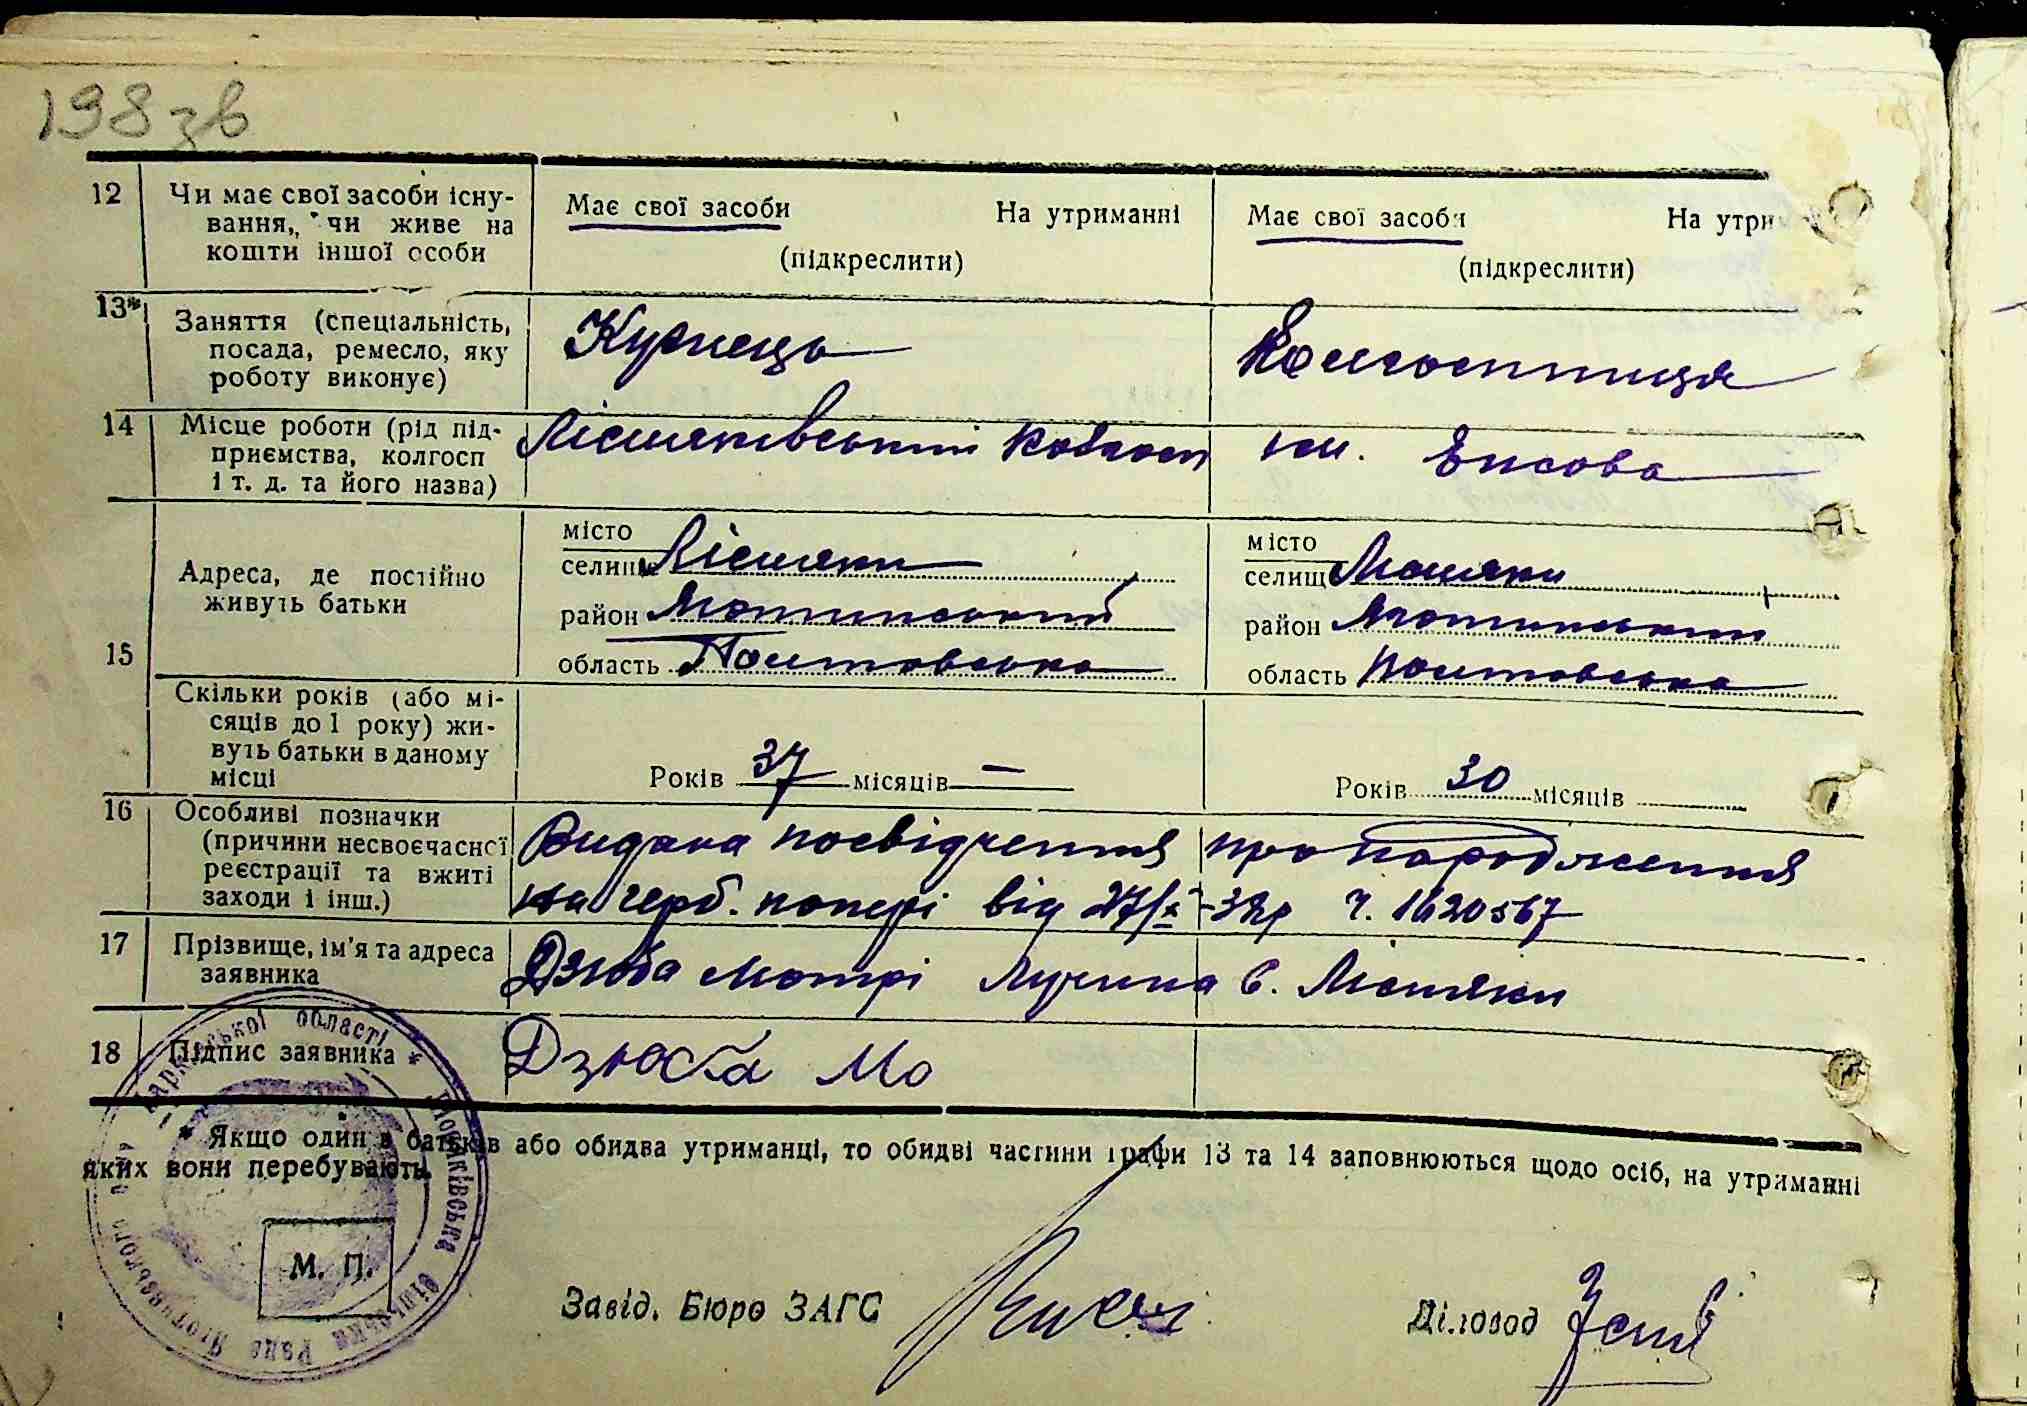 198 зв
12 Чи має свої засоби існу-
вання, чи живе на
кошти іншої особи
Має свої засоби На утриманні
(підкреслити)
Має свої засоби На утри
(підкреслити)
13* Заняття (спеціальність,
посада, ремесло, яку
роботу виконує)
Кузнець
Колгоспниця
14 Місце роботи (рід під-
приємства, колгосп
і т. д. та його назва)
Лісняківський колгосп ім.
15 Адреса, де постійно
живуть батьки
місто
селище Лісняки
район Яготинський
область Полтавська
місто
селищ Лісняки
район Яготинський
область Полтавська
Скільки років (або мі-
сяців до 1 року) жи-
вуть батьки в даному
місці
Років 37 місяців —
Років 30 місяців
16 Особливі позначки
(причини несвоєчасної
реєстрації та вжиті
заходи і інш.)
Видана посвідчення про народження
на герб. папері від 27/X-38р ч. 1620567
17 Прізвище, ім'я та адреса
заявника
Дзюба Мотрі с. Лісняки
18 Підпис заявника
Дзюба Мо
* Якщо один з батьків або обидва утриманці, то обидві частини графи 13 та 14 заповнюються щодо осіб, на утриманні
яких вони перебувають.
Харківської області * сільська Рада Яготинського
М. П.
Завід. Бюро ЗАГС
Діловод